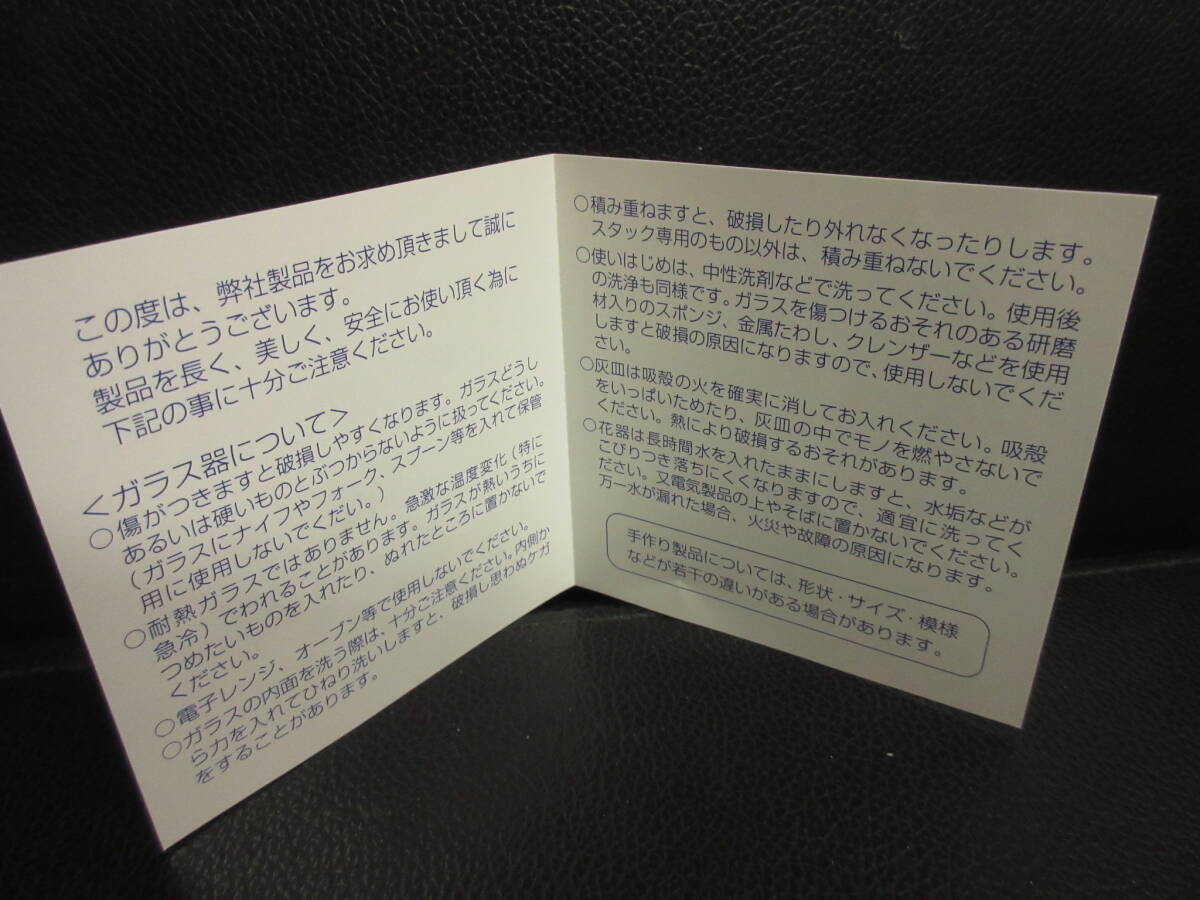 この度は、弊社製品をお求め頂きまして誠に
ありがとうございます。
製品を長く、美しく、安全にお使い頂く為に
下記の事に十分ご注意ください。
＜ガラス器について＞
○傷がつきますと破損しやすくなります。ガラスどうし
あるいは硬いものとぶつからないように扱ってください。
（ガラスにナイフやフォーク、スプーン等を入れて保管
用に使用しないでくだい。）
○耐熱ガラスではありません。急激な温度変化（特に
急冷）でわれることがあります。ガラスが熱いうちに
つめたいものを入れたり、ぬれたところに置かないで
ください。
○電子レンジ、オーブン等で使用しないでください。
○ガラスの内面を洗う際は、十分ご注意ください。内側か
ら力を入れてひねり洗いしますと、破損し思わぬケガ
をすることがあります。
○積み重ねますと、破損したり外れなくなったりします。
スタック専用のもの以外は、積み重ねないでください。
○使いはじめは、中性洗剤などで洗ってください。使用後
の洗浄も同様です。ガラスを傷つけるおそれのある研磨
材入りのスポンジ、金属たわし、クレンザーなどを使用
しますと破損の原因になりますので、使用しないでくだ
さい。
○灰皿は吸殻の火を確実に消してお入れください。吸殻
をいっぱいためたり、灰皿の中でモノを燃やさないで
ください。熱により破損するおそれがあります。
○花器は長時間水を入れたままにしますと、水垢などが
こびりつき落ちにくくなりますので、適宜に洗ってく
ださい。又電気製品の上やそばに置かないでください。
万一水が漏れた場合、火災や故障の原因になります。
手作り製品については、形状・サイズ・模様
などが若干の違いがある場合があります。